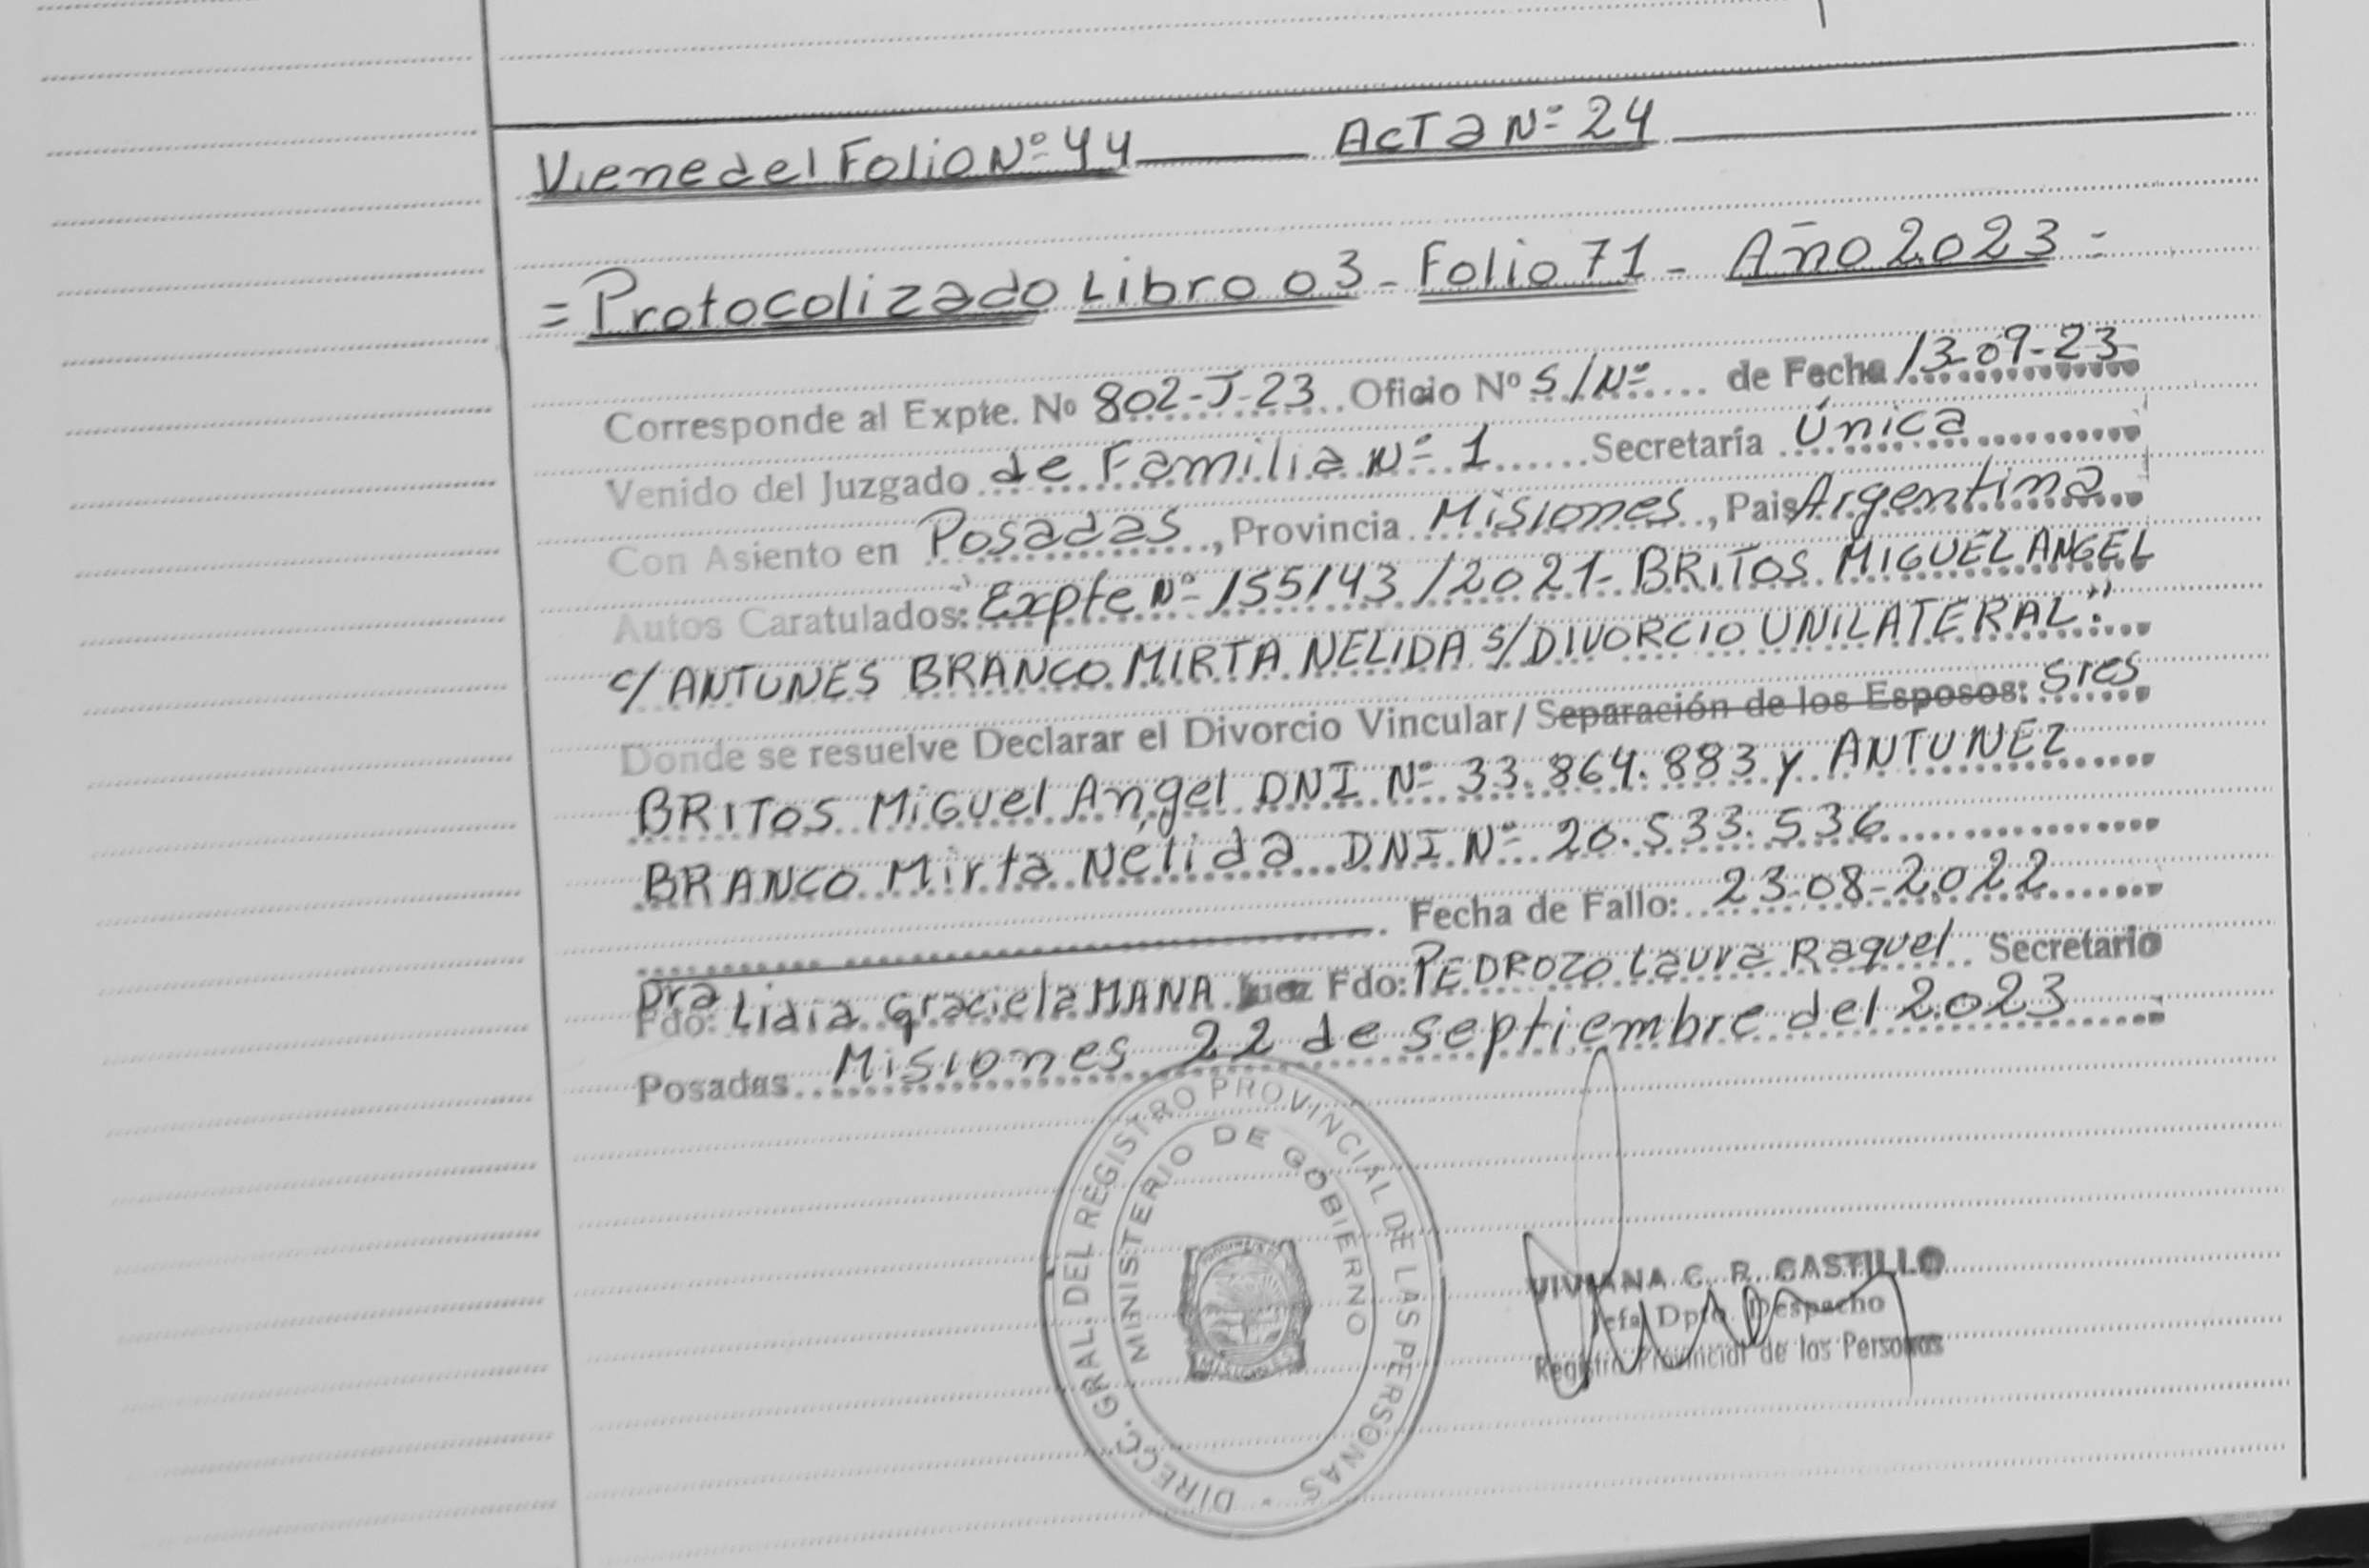 Viene del Folio Nº 44 ACTA Nº 24
= Protocolizado Libro 03 - Folio 71 - Año 2023 =
Corresponde al Expte. Nº 802-J-23 Oficio Nº S/Nº de Fecha 13-09-23
Venido del Juzgado de Familia Nº 1 Secretaría Única
Con Asiento en Posadas, Provincia Misiones, Pais Argentina
Autos Caratulados: "Expte Nº 155143/2021- BRITOS MIGUEL ANGEL
c/ ANTUNES BRANCO MIRTA NELIDA s/ DIVORCIO UNILATERAL."
Donde se resuelve Declarar el Divorcio Vincular/Separación de los Esposos: Sres
BRITOS Miguel Angel DNI Nº 33.864.883 y ANTUNEZ
BRANCO Mirta Nélida DNI Nº 20.533.536
Fecha de Fallo: 23-08-2022
Fdo: Dra Lidia Graciela MANA Juez Fdo: PEDROZO Laura Raquel Secretario
Posadas Misiones 22 de septiembre del 2023
DIRECC. GRAL. DEL REGISTRO PROVINCIAL DE LAS PERSONAS
MINISTERIO DE GOBIERNO
MISIONES
VIVIANA C. R. CASTILLO
Jefa Dpto. Despacho
Registro Provincial de las Personas